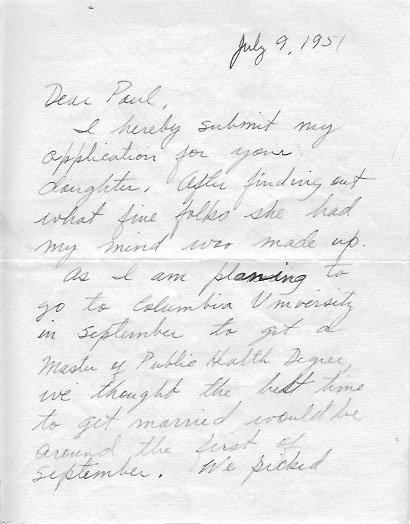 July 9, 1951
Dear Paul,
I hereby submit my
application for your
daughter. After finding out
what fine folks she had
my mind was made up.
As I am planing to
go to Columbia University
in September to get a
Master of Public Health Degree,
we thought the best time
to get married would be
around the first of
September. We picked